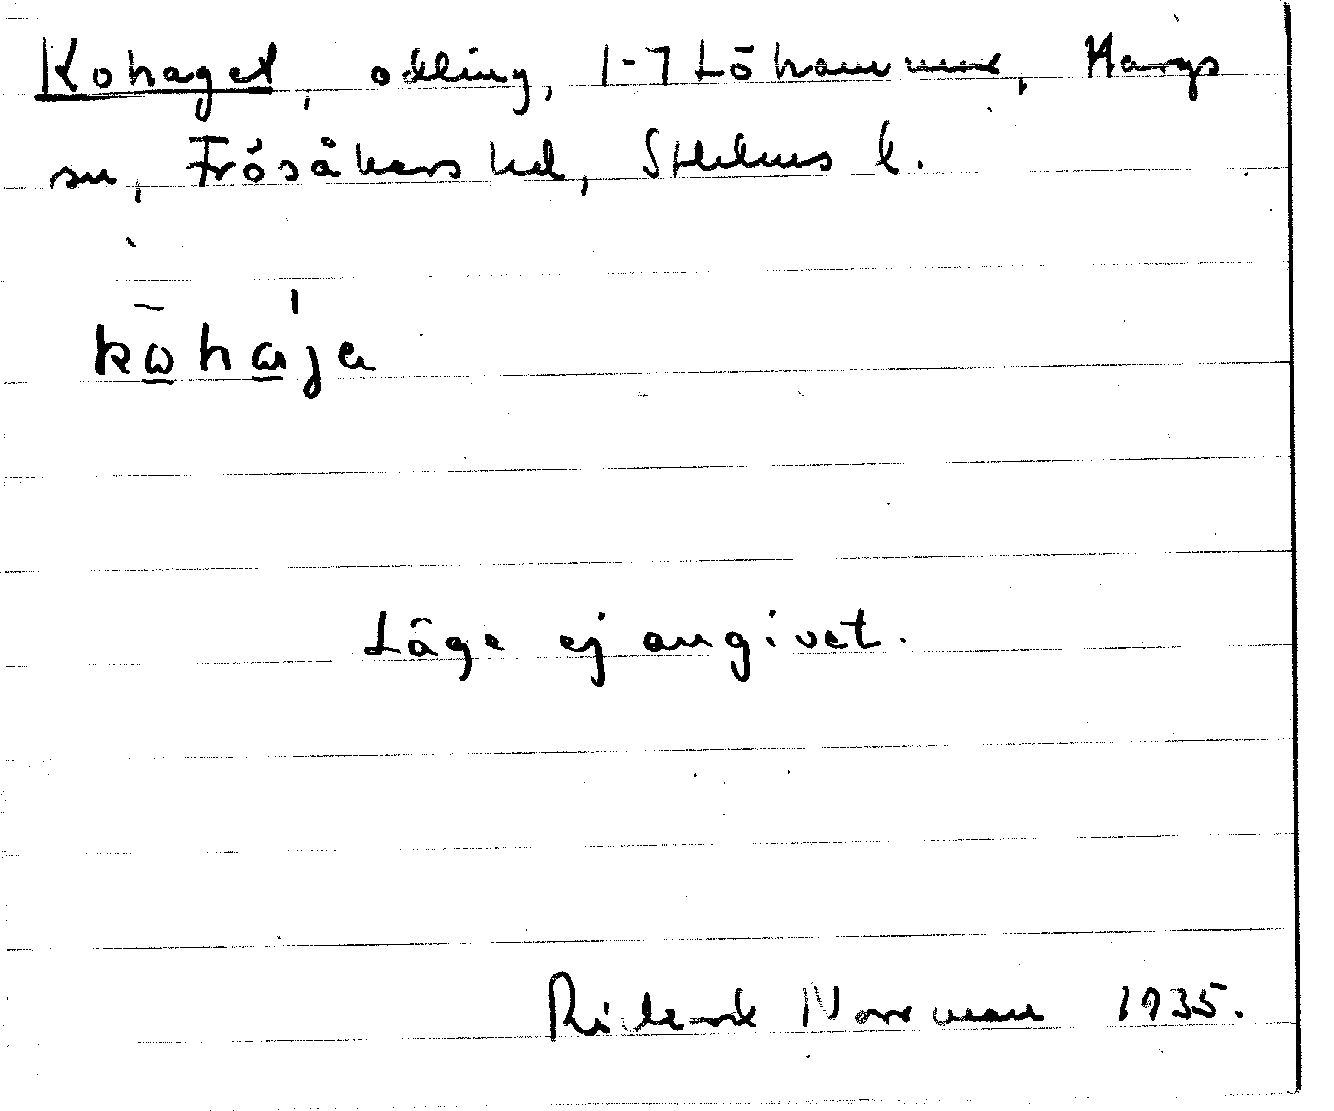 Kohaget, odling, 1-7 Löhammar, Hargs
sn, Frösåkers hd, Sthlms l.
kōhája
Läge ej angivet.
Rickard Norrman 1935.